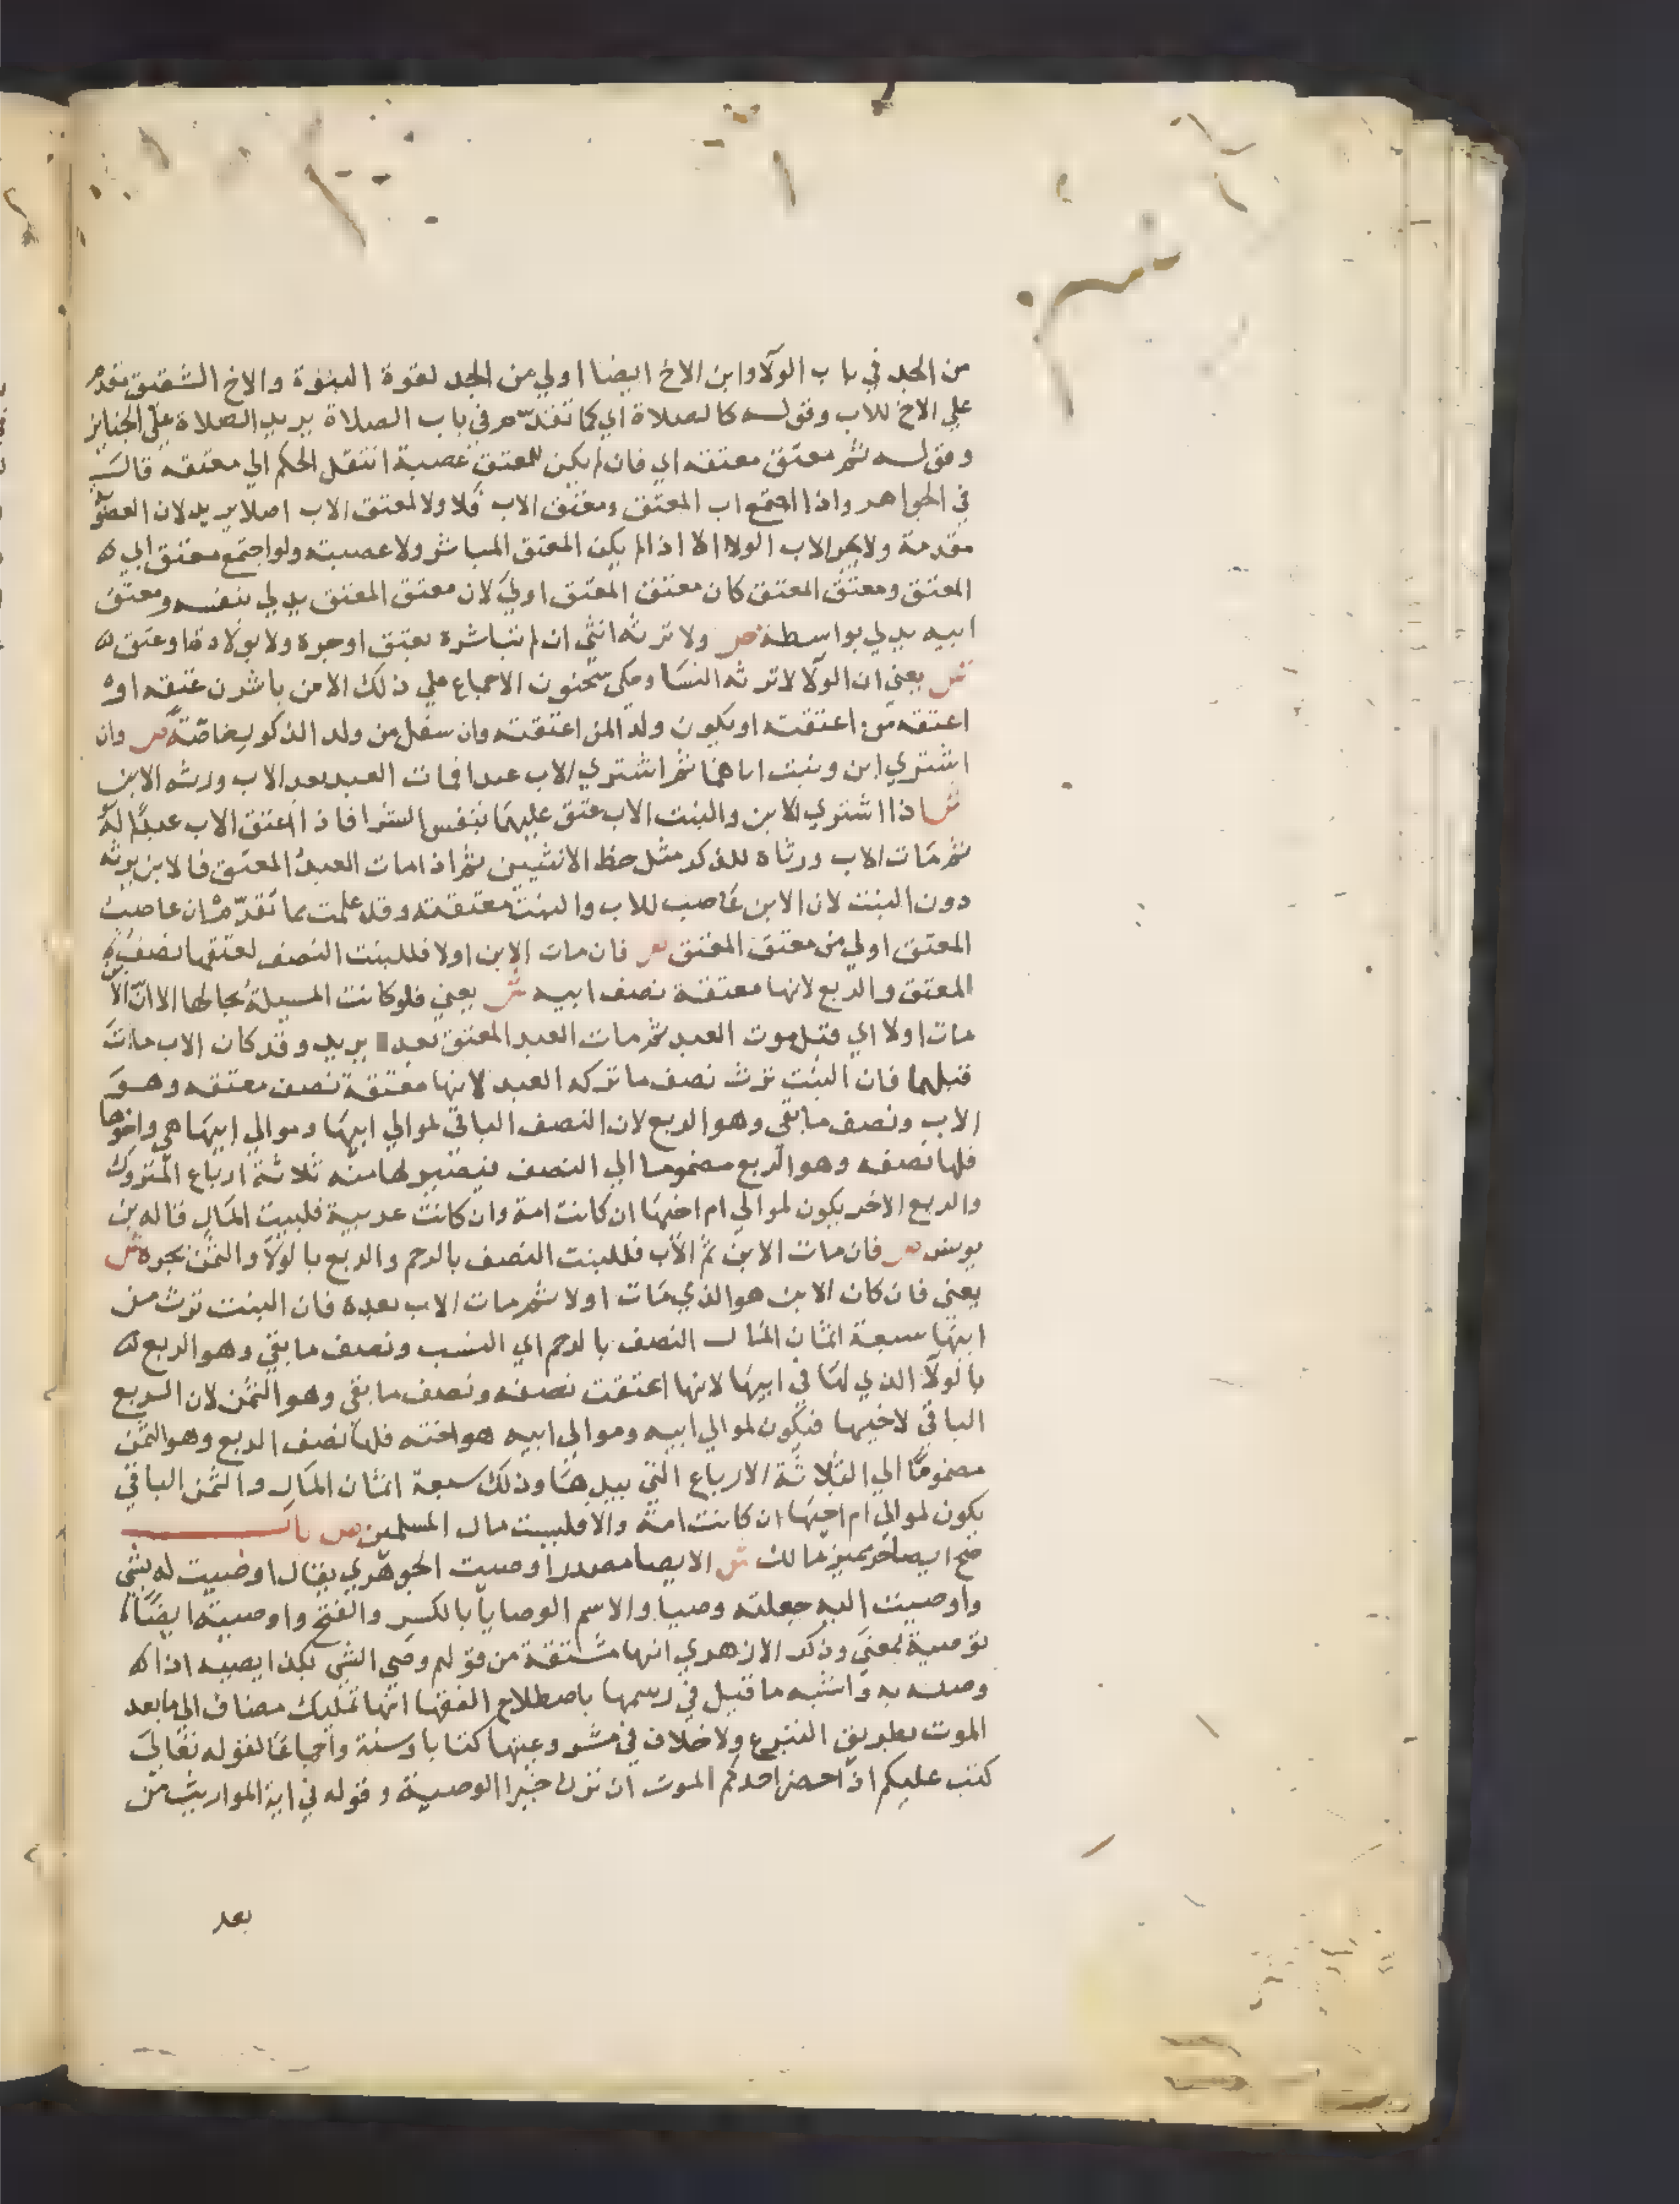 من الجد في باب الولاء وابن الاخ ايضا اولي من الجد لقوة البنوة والاخ الشقيق تقدم
علي الاخ للاب وقوله كالصلاة اي كما تقدم في باب الصلاة يريد الصلاة علي الجنايز
وقوله ثم معتق معتقه اي فان لم يكن للمعتق عصبة انتقل الحكم الي معتقه قال
في الجواهر واذا اجتمع اب المعتق ومعتق الاب فلا ولا لمعتق الاب اصلا يريد لان العصوبة
مقدمة ولا يجر الاب الولا الا اذا لم يكن المعتق المباشر ولا عصبته ولو اجتمع معتق ابي
المعتق ومعتق المعتق كان معتق المعتق اولي لان معتق المعتق يدلي بنفسه ومعتق
ابيه يدلي بواسطة ص ولا ترثه انثي ان لم تباشره بعتق او جره ولا بولادة او عتق
ش يعني ان الولا لا ترثه النسا وحكي سحنون الاجماع علي ذلك الا من باشرن عتقه او
اعتقه من اعتقته او يكون ولد المن اعتقته وان سفل من ولد الذكور خاصة ص وان
اشتري ابن وبنت اباهما ثم اشتري الاب عبدا فمات العبد بعد الاب ورثه الابن
ش اذا اشتري الابن والبنت الاب عتق عليهما بنفس الشرا فاذا اعتق الاب عبدا له
ثم مات الاب ورثاه للذكر مثل حظ الانثيين ثم اذا مات العبد المعتق فالابن يرثه
دون البنت لان الابن عاصب للاب والبنت معتقته وقد علمت بما تقدم ان عاصب
المعتق اولي من معتق المعتق ص فان مات الابن اولا فللبنت النصف لعتقها نصف
المعتق والربع لانها معتقة نصف ابيه ش يعني فلو كانت المسيلة بحالها الا ان الابن
مات اولا اي قبل موت العبد ثم مات العبد المعتق بعد يريد وقد كان الاب مات
قبلهما فان البنت ترث نصف ما تركه العبد لانها معتقة نصف معتقه وهو
الاب ونصف ما بقي وهو الربع لان النصف الباقي لموالي ابيها وموالي ابيها هي واخوها
فلها نصفه وهو الربع مضموما الي النصف فيصير لها منه ثلاثة ارباع المتروك
والربع الاخر يكون لموالي ام اخيها ان كانت امة وان كانت عربية فلبيت المال قاله بن
يونس ص فان مات الابن ثم الاب فللبنت النصف بالرحم والربع بالولا والثمن بجره ش
يعني فان كان الابن هو الذي مات اولا ثم مات الاب بعده فان البنت ترث من
ابيها سبعة اثمان المال النصف بالرحم اي النسب ونصف ما بقي وهو الربع
بالولا الذي لها في ابيها لانها اعتقت نصفه ونصف ما بقي وهو الثمن لان الربع
الباقي لاخيها فيكون لموالي ابيه وموالي ابيه هو اخته فلها نصف الربع وهو الثمن
مضموما الي الثلاثة الارباع التي بيدها وذلك سبعة اثمان المال والثمن الباقي
يكون لموالي ام اخيها ان كانت امة والا فلبيت مال المسلمين ص باب
صح ايصا حر مميز مالك ش الايصا مصدر اوصيت الجوهري يقال اوصيت له بشي
واوصيت اليه جعلته وصيا والاسم الوصايا بالكسر والفتح واوصيته ايضا
توصية بمعني وذكر الازهري انها مشتقة من قولهم وصي الشي بكذا يصيه اذا
وصله به واشبه ما قيل في رسمها باصطلاح الفقها انها تمليك مضاف الي ما بعد
الموت بطريق التبرع ولا خلاف في مشروعيتها كتابا وسنة واجماعا لقوله تعالي
كتب عليكم اذا حضر احدكم الموت ان ترك خيرا الوصية وقوله في اية المواريث من
بعد